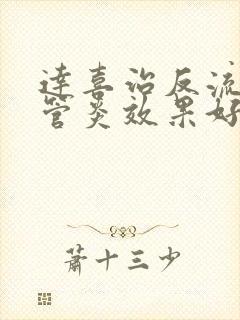 達喜治反流
管炎效果好
蕭十三少